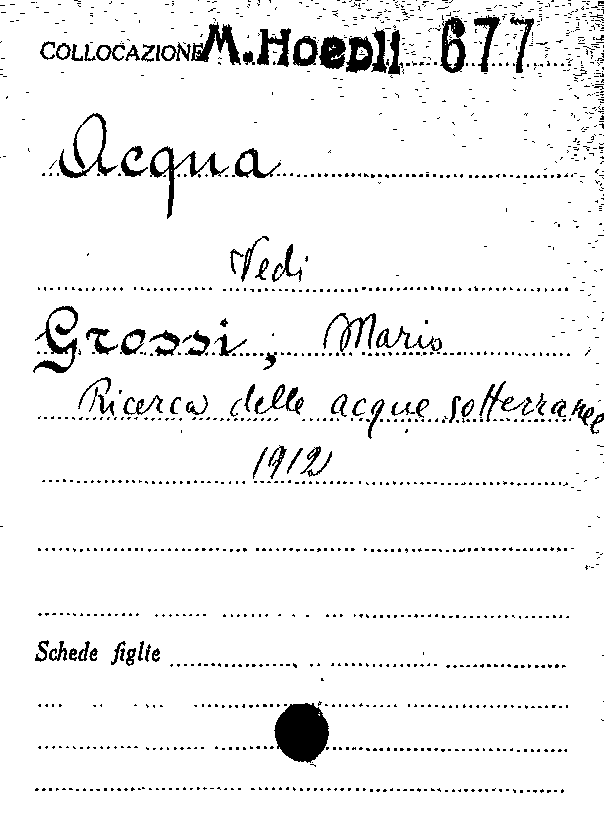 COLLOCAZIONE M. Hoepli 677
Acqua
Vedi
Grossi, Mario
Ricerca delle acque sotterranee
1912
Schede figlie